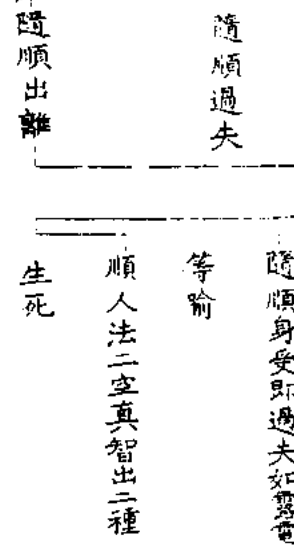 隨順過失
隨順出離
隨順身受即過失如露電
等喻
順人法二空真智出二種
生死